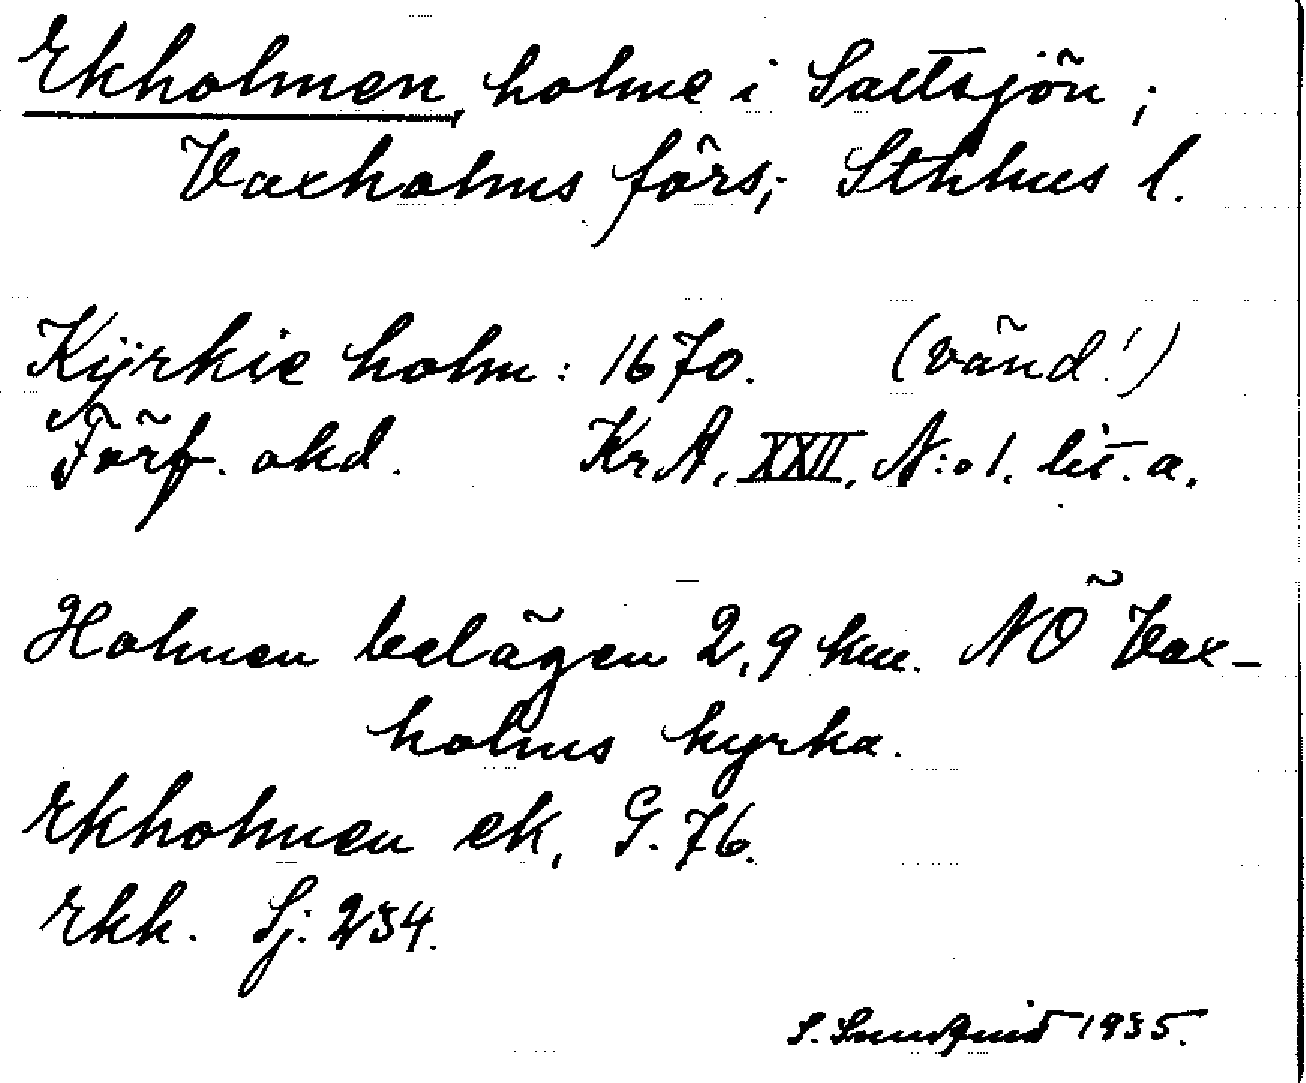 Ekholmen, holme i Saltsjön;
Vaxholms förs; Sthlms l.
Kÿrkie holm: 1670. (vänd!)
Förf. okd. KrA, XXII, N:o 1. lit. a.
Holmen belägen 2,9 km. NÖ Vax-
holms kyrka.
Ekholmen ek, G. 76.
Ekk. Sj. 234.
S. Sundquist 1935.